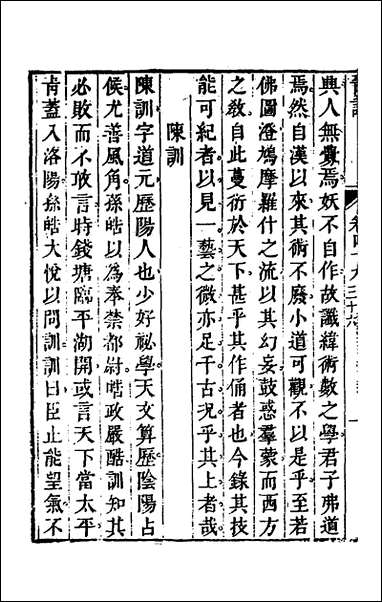 興人無釁焉妖不自作故讖緯術數之學君子弗道
焉然自漢以來其術不廢小道可觀不以是乎至若
佛圖澄鳩摩羅什之流以其幻妄鼓惑羣蒙而西方
之敎自此蔓衍於天下甚乎其作俑者也今錄其技
能可紀者以見一藝之微亦足千古況乎其上者哉
陳訓
陳訓字道元歷陽人也少好祕學天文算歷陰陽占
候尤善風角孫皓以爲奉禁都尉皓政嚴酷訓知其
必敗而不敢言時錢塘臨平湖開或言天下當太平
靑蓋入洛陽孫皓大悅以問訓訓曰臣止能望氣不